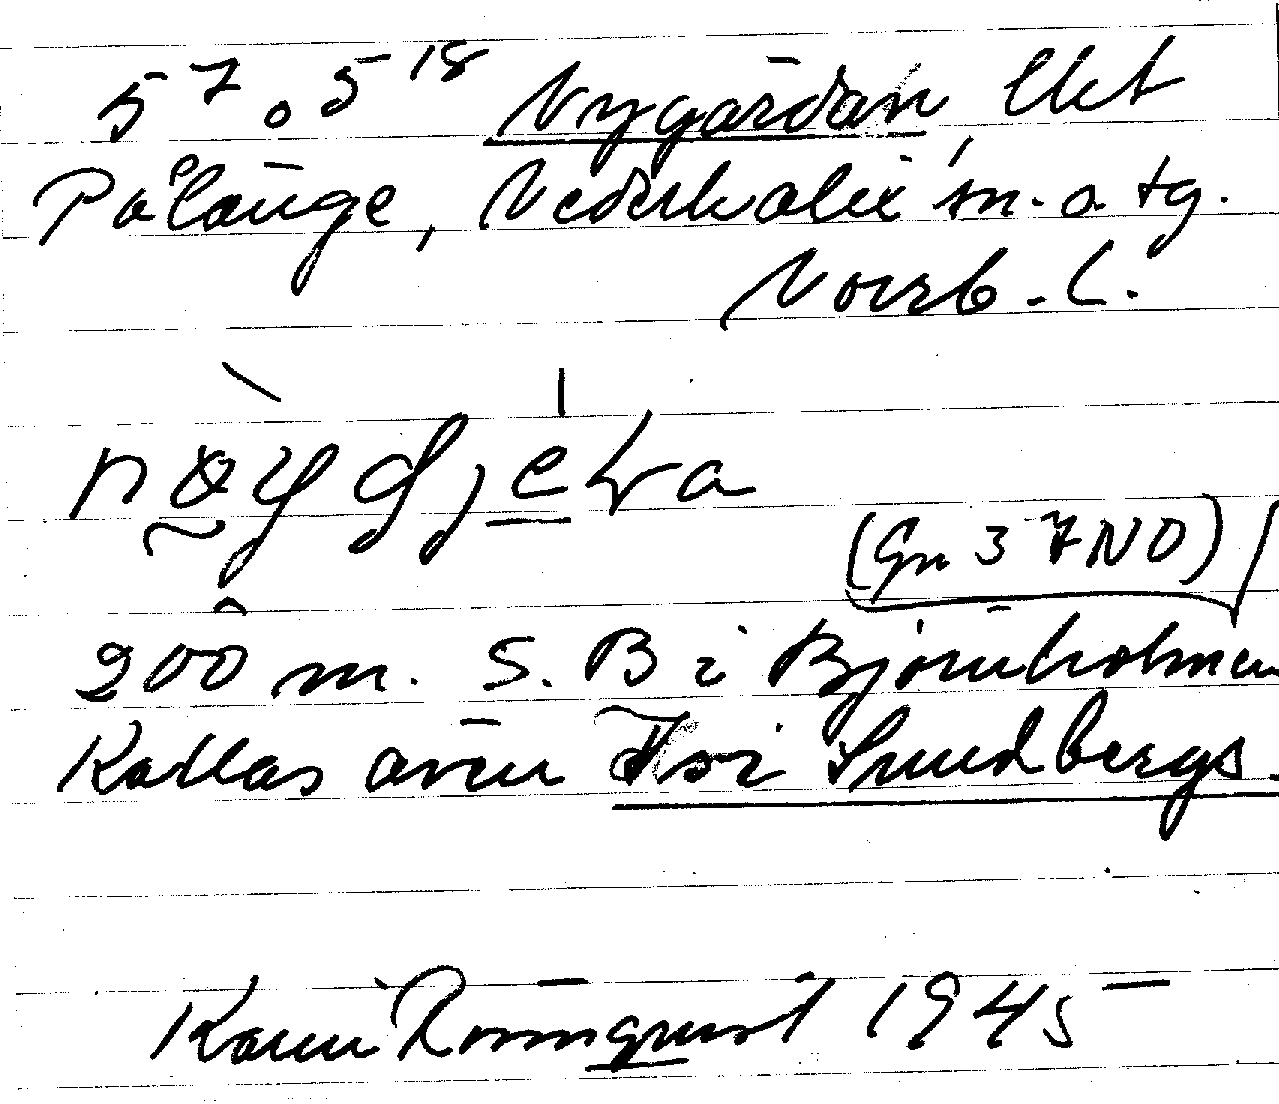 5⁷ o. 5¹⁸ Nygårdarn, Ekt
Pålänge, Nederkalix sn. o. tg.
Norrb. l.
(Gn 37NO)
200 m. S. B i Björnholmen
Kallas även Sundbergs.
Karin Rönnqvist 1945